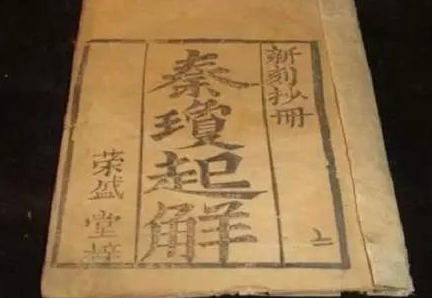 新刻抄冊
上
秦瓊起解
荣盛堂梓